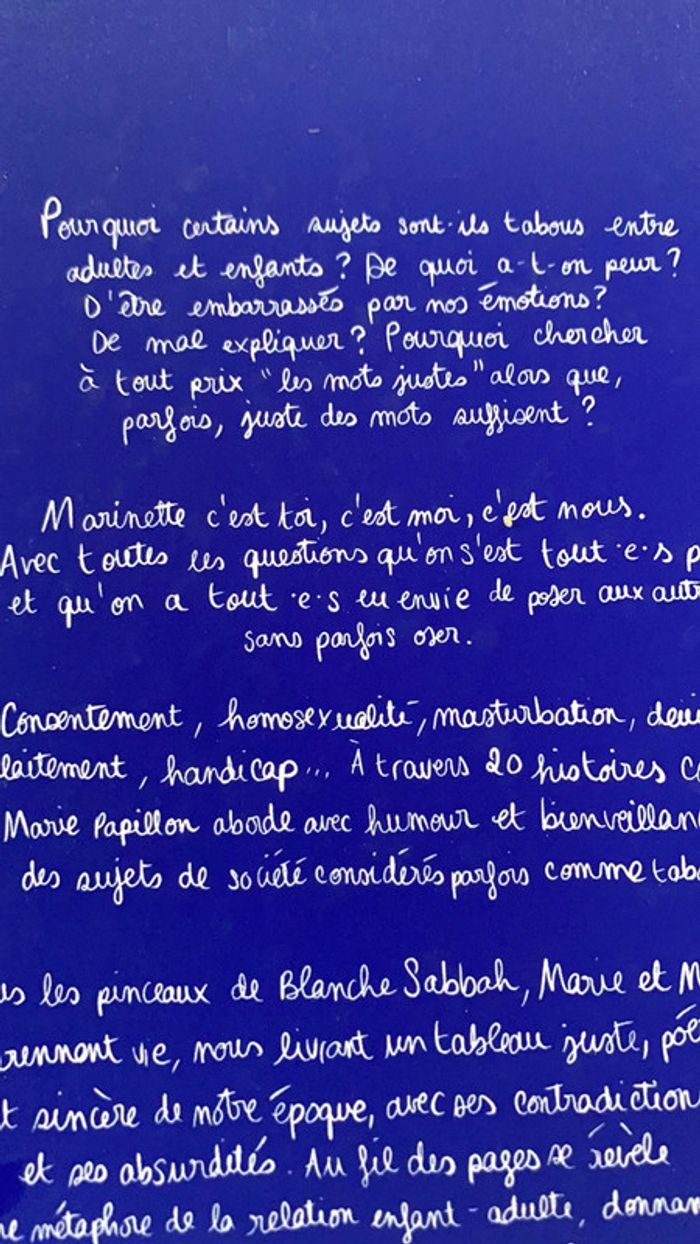 Pourquoi certains sujets sont-ils tabous entre
adultes et enfants ? De quoi a-t-on peur ?
D'être embarrassés par nos émotions ?
De mal expliquer ? Pourquoi chercher
à tout prix "les mots justes" alors que,
parfois, juste des mots suffisent ?
Marinette c'est toi, c'est moi, c'est nous.
Avec toutes les questions qu'on s'est tout·e·s p
et qu'on a tout·e·s eu envie de poser aux aut
sans parfois oser.
Consentement, homosexualité, masturbation, deu
laitement, handicap... À travers 20 histoires c
Marie Papillon aborde avec humour et bienveillan
des sujets de société considérés parfois comme tab
us les pinceaux de Blanche Sabbah, Marie et M
rennent vie, nous livrant un tableau juste, poé
t sincère de notre époque, avec ses contradiction
et ses absurdités. Au fil des pages se révèle
ne métaphore de la relation enfant-adulte, donnan